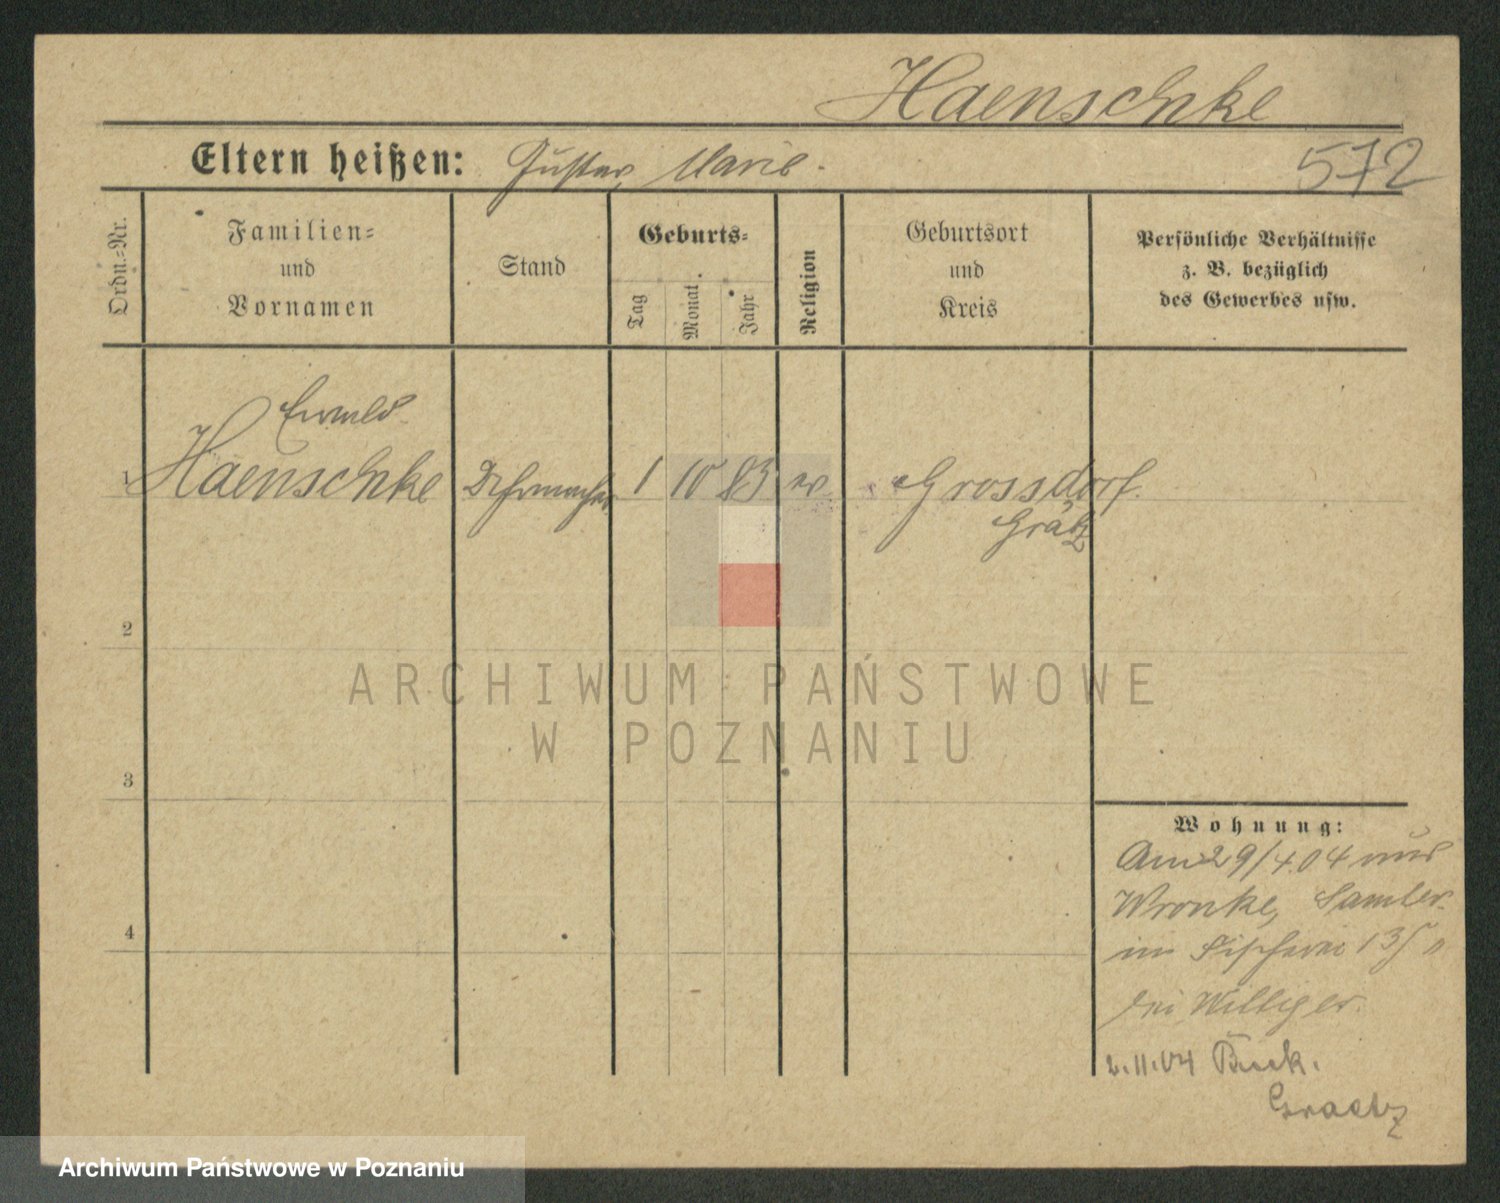 Haenschke
Eltern heißen: Gustav, Marie.
572
Ordn.=Nr.
Familien=
und
Vornamen
Stand
Geburts=
Tag
Monat
Jahr
Religion
Geburtsort
und
Kreis
Persönliche Verhältnisse
z. B. bezüglich
des Gewerbes usw.
Ewald
1 Haenschke Uhrmacher 1 10 83 ev. Grossdorf.
Grätz
2
3
4
Wohnung:
Am 29/4.04 aus
Wronke, Samter.
im Fischerei 13
bei Williger.
2.11.04 Buck.
Graetz
ARCHIWUM PAŃSTWOWE
W POZNANIU
Archiwum Państwowe w Poznaniu